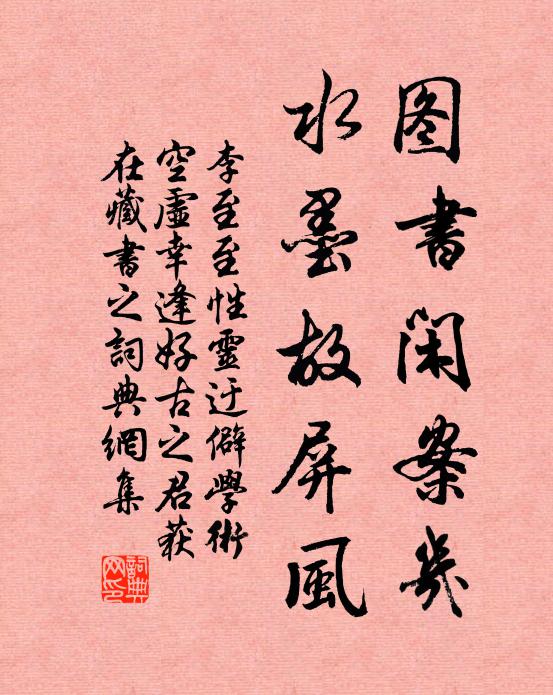 图书闲案几
水墨故屏風
李至至性靈迂僻學術
空虛幸逢好古之君获
在藏書之詞典網集
詞典网印